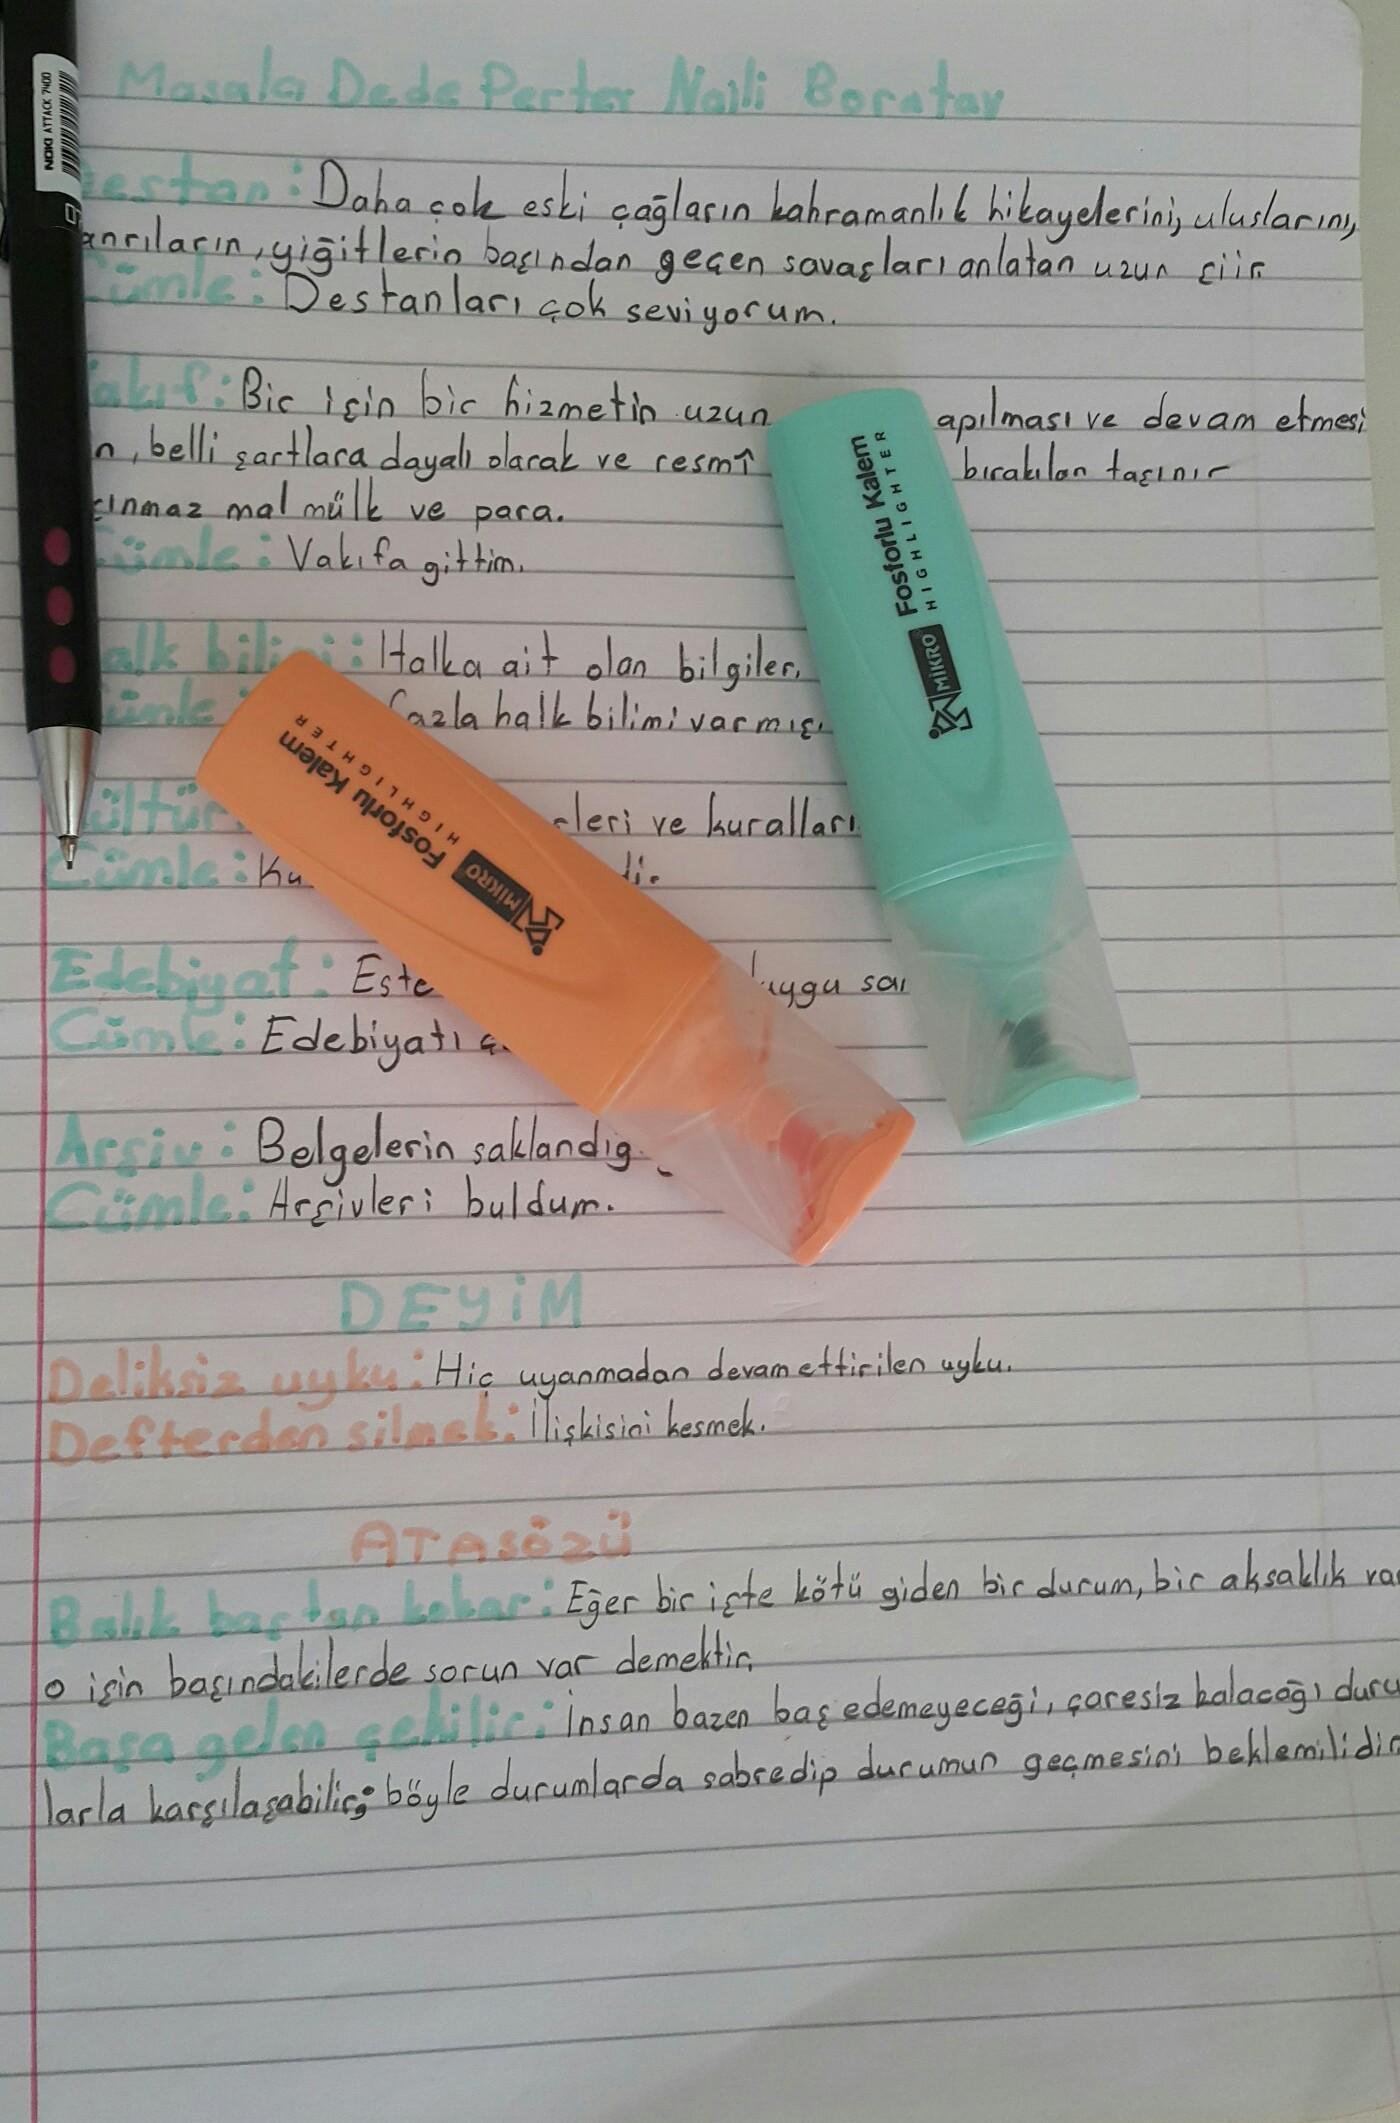 Masala Dede Perter Naili Boratav
Destan: Daha çok eski çağların kahramanlık hikayelerini, uluslarını,
anrıların, yiğitlerin başından geçen savaşları anlatan uzun şiir.
Cümle: Destanları çok seviyorum.
Vakıf: Bir işin bir hizmetin uzun apılması ve devam etmesi
n, belli şartlara dayalı olarak ve resmî bırakılan taşınır
şınmaz mal mülk ve para.
Cümle: Vakıfa gittim.
Halk bilimi: Halka ait olan bilgiler.
Cümle fazla halk bilimi varmış.
Kültür leri ve kuralları
Cümle: Ku dir.
Edebiyat: Este uygu
Cümle: Edebiyatı
Arşiv: Belgelerin saklandığ
Cümle: Arşivleri buldum.
DEYİM
Deliksiz uyku: Hiç uyanmadan devam ettirilen uyku.
Defterden silmek: İlişkisini kesmek.
ATASÖZÜ
Balık baştan kokar: Eğer bir işte kötü giden bir durum, bir aksaklık var
o işin başındakilerde sorun var demektir.
Başa gelen çekilir: İnsan bazen baş edemeyeceği, çaresiz kalacağı duru
larla karşılaşabilir; böyle durumlarda sabredip durumun geçmesini beklemilidir
NOKI ATTACK 7400
MİKRO Fosforlu Kalem
HIGHLIGHTER
MİKRO Fosforlu Kalem
HIGHLIGHTER